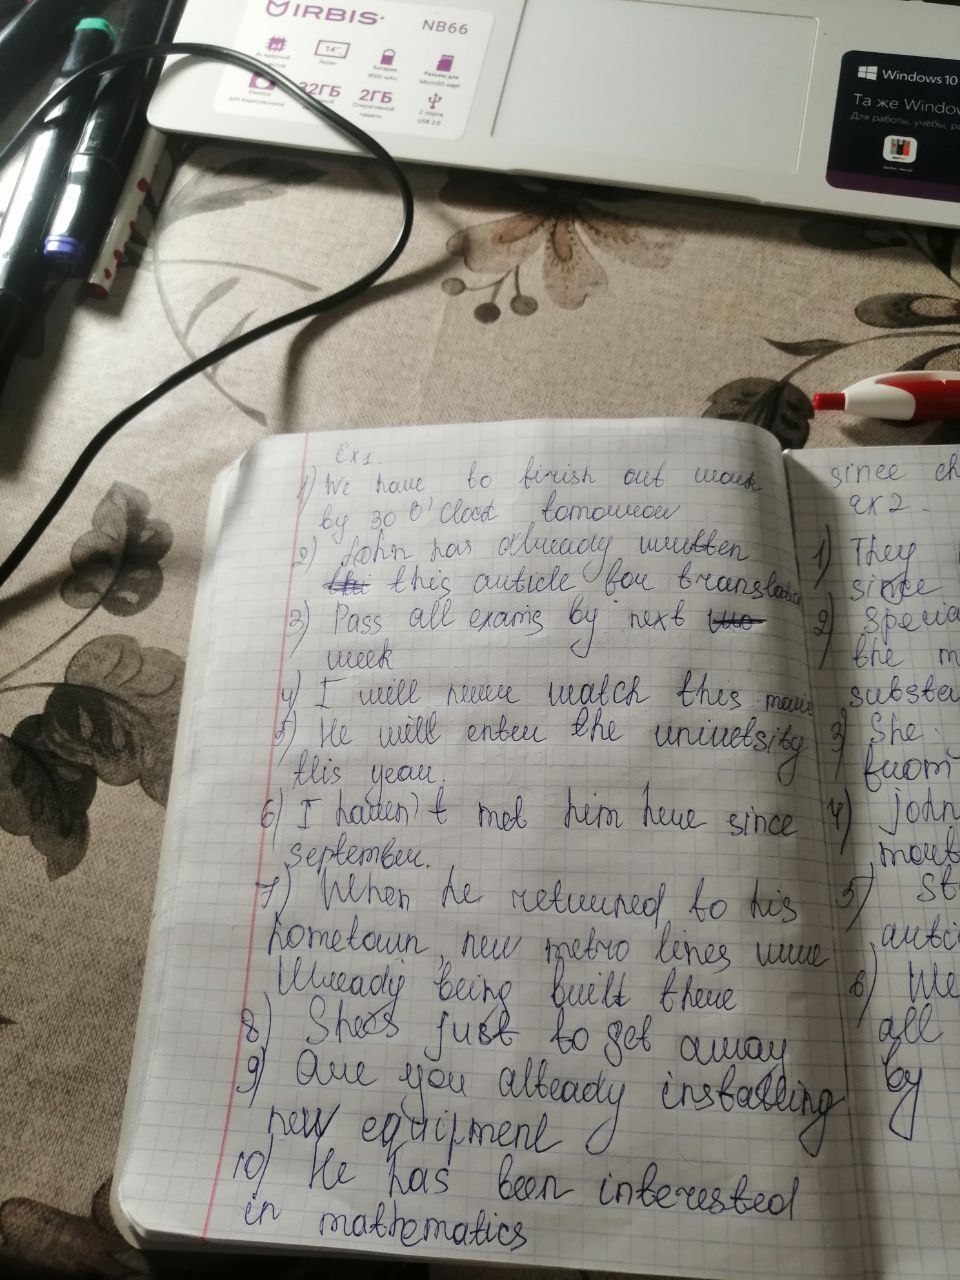 IRBIS
NB66
14"
Экран
Батарея
Разъем для
MicroSD карт
Камера
для видеозвонков
32ГБ
2ГБ
Оперативной
памяти
2 порта
USB 2.0
Windows 10
Та же Window
Для работы, учебы,
ex1.
1) We have to finish out work
by 30 O'Clock tomorrow
2) John has already written
this article for translation
3) Pass all exams by next
week
4) I will never watch this movie
5) He will enter the university
this year.
6) I haven't met him here since
september.
7) When he returned to his
hometown, new metro lines were
Already being built there
8) She's just to get away
9) Are you already installing
new equipment
10) He has been interested
in mathematics
since ch
ex2.
1) They
since
2) Specia
the m
substa
3) She
from
4) john
5) St
artic
6) We
all
by